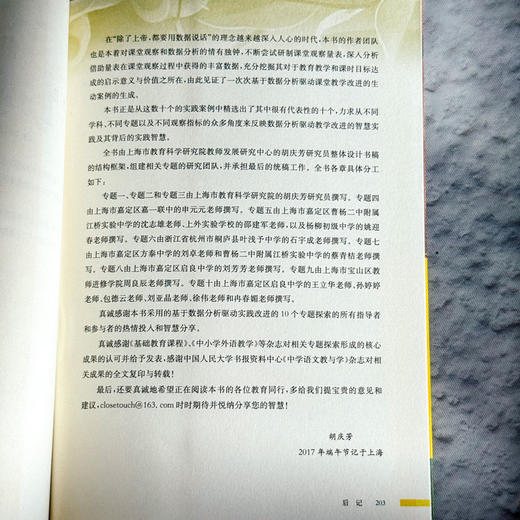 在“除了上帝，都要用数据说话”的理念越来越深入人心的时代，本书的作者团队
也是本着对课堂观察和数据分析的情有独钟，不断尝试研制课堂观察量表，深入分析
借助量表在课堂观察过程中获得的丰富数据，充分挖掘其对于教育教学和课时目标达
成的启示意义与价值之所在，由此见证了一次次基于数据分析驱动课堂教学改进的生
动案例的生成。
本书正是从这数十个的实践案例中精选出了其中很有代表性的十个，力求从不同
学科、不同专题以及不同观察指标的众多角度来反映数据分析驱动教学改进的智慧实
践及其背后的实践智慧。
全书由上海市教育科学研究院教师发展研究中心的胡庆芳研究员整体设计书稿
的结构框架，组建相关专题的研究团队，并承担最后的统稿工作。全书各章具体分工
如下：
专题一、专题二和专题三由上海市教育科学研究院的胡庆芳研究员撰写。专题四
由上海市嘉定区嘉一联中的申元元老师撰写。专题五由上海市嘉定区曹杨二中附属
江桥实验中学的沈志雄老师、上外实验学校的邵建军老师，以及杨柳初级中学的姚迎
春老师撰写。专题六由浙江省杭州市桐庐县叶浅予中学的石宇成老师撰写。专题七
由上海市嘉定区方泰中学的刘卓老师和曹杨二中附属江桥实验中学的蔡青桔老师撰
写。专题八由上海市嘉定区启良中学的刘芳芳老师撰写。专题九由上海市宝山区教
师进修学院周良辰老师撰写。专题十由上海市嘉定区启良中学的王立华老师、孙婷婷
老师、包德云老师、刘亚品老师、徐伟老师和冉春媚老师撰写。
真诚感谢本书采用的基于数据分析驱动实践改进的10个专题探索的所有指导者
和参与者的热情投入和智慧分享。
真诚感谢《基础教育课程》、《中小学外语教学》等杂志对相关专题探索形成的核心
成果的认可并给予发表，感谢中国人民大学书报资料中心《中学语文教与学》杂志对相
关成果的全文复印与转载！
最后，还要真诚地希望正在阅读本书的各位教育同行，多给我们提宝贵的意见和
建议，closetouch@163.com时时期待并悦纳分享您的智慧！
胡庆芳
2017年端午节记于上海
后记 203